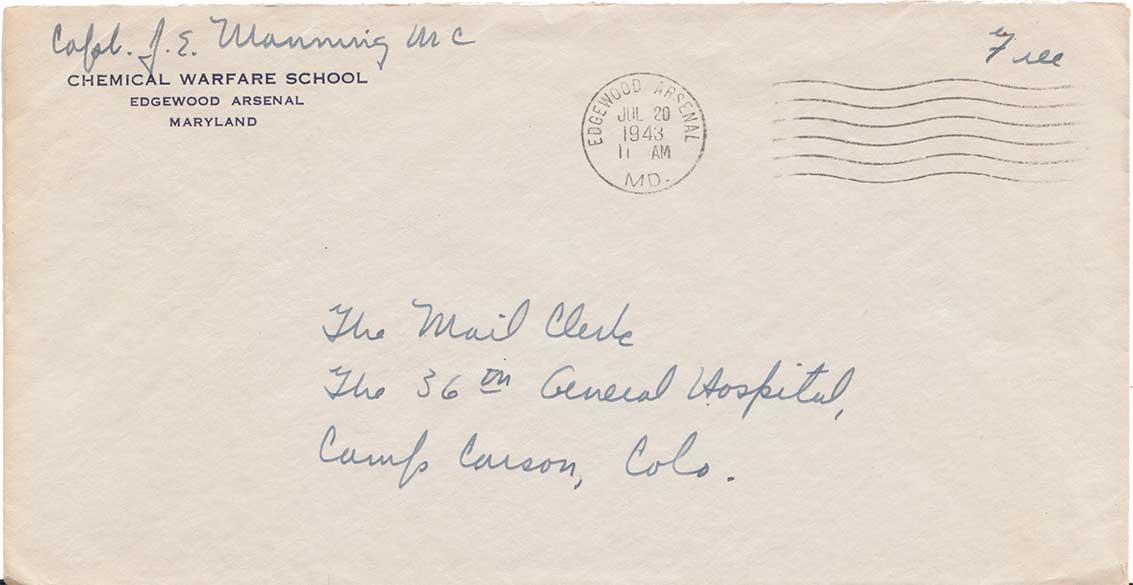 Capt. J. E. Manning MC
Free
CHEMICAL WARFARE SCHOOL
EDGEWOOD ARSENAL
MARYLAND
EDGEWOOD ARSENAL
JUL 20
1943
11 AM
MD.
The Mail Clerk
The 36th General Hospital,
Camp Carson, Colo.